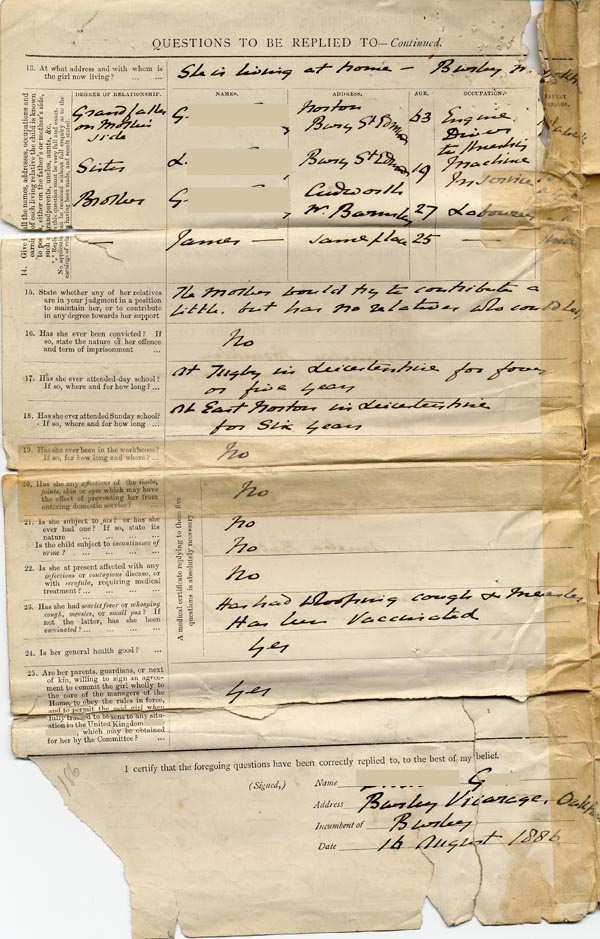 QUESTIONS TO BE REPLIED TO—Continued.
13. At what address and with whom is
the girl now living? ... ...
She is living at home –
DEGREE OF RELATIONSHIP. NAMES. ADDRESS. AGE. OCCUPATION.
Grandfather G. Norton 63 Engine
on Mothers Bury St Edmds Driver
side to thrashing
Sister L. Bury St Edmds 19 Machine
In service
Brother G. Cudworth
Nr. Barnsley 27 Labourer
— James — same place 25 —
14. Give all the names, addresses, occupations and
earnings of each living relative the child is known
to possess, either on the father's or mother's side,
such as grandparents, uncles, aunts, &c.
15. State whether any of her relatives
are in your judgment in a position
to maintain her, or to contribute
in any degree towards her support
The Mother would try to contribute a
little, but has no relatives who could help
16. Has she ever been convicted? If
so, state the nature of her offence
and term of imprisonment ...
No
17. Has she ever attended day school?
If so, where and for how long? ...
At Tugby in Leicestershire for four
or five years
18. Has she ever attended Sunday school?
If so, where and for how long ...
At East Norton in Leicestershire
for Six years
19. Has she ever been in the workhouse?
If so, for how long and where? ...
No
A medical certificate replying to these five
questions is absolutely necessary.
20. Has she any affections of the limbs,
joints, skin or eyes which may have
the effect of preventing her from
entering domestic service? ...
No
21. Is she subject to fits? or has she
ever had one? If so, state its
nature ... ... ... ...
No
Is the child subject to incontinence of
urine? ... ... ... ...
No
22. Is she at present affected with any
infectious or contagious disease, or
with scrofula, requiring medical
treatment? ... ... ...
No
23. Has she had scarlet fever or whooping
cough, measles, or small pox? If
not the latter, has she been
vaccinated? ... ... ...
Has had Whooping cough & Measles
Has been Vaccinated
24. Is her general health good? ...
Yes
25. Are her parents, guardians, or next
of kin, willing to sign an agree-
ment to commit the girl wholly to
the care of the managers of the
Home, to obey the rules in force,
and to permit the said girl when
fully trained to be sent to any situ-
ation in the United Kingdom
, which may be obtained
for her by the Committee? ...
Yes
I certify that the foregoing questions have been correctly replied to, to the best of my belief.
(Signed,) Name G
Address Vicarage,
Incumbent of
Date 16 August 1886
186